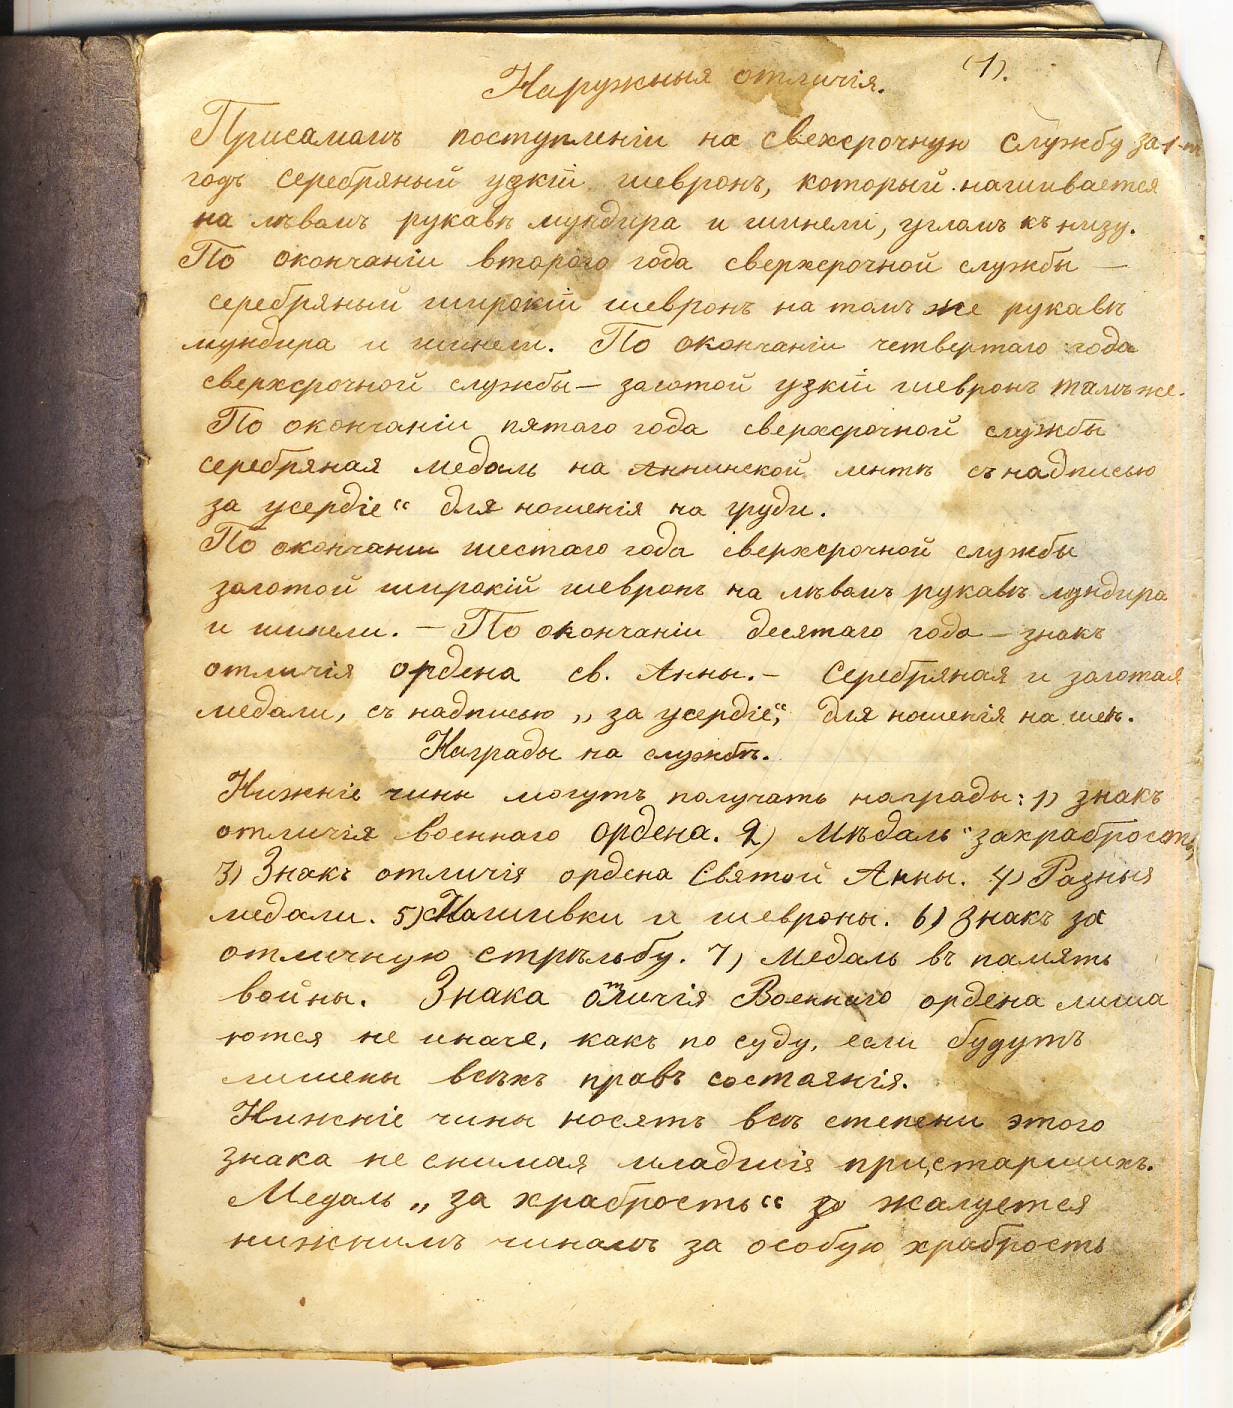 (1).
Наружныя отличія.
Присамомъ поступленіи на свехсрочную службу за 1-й
годъ серебряный узкій шевронъ, который нашивается
на лѣвомъ рукавѣ мундира и шинели, угломъ къ низу.
По окончаніи второго года сверхсрочной службы —
серебряный широкій шевронъ на томъ же рукавѣ
мундира и шинели. По окончаніи четвертаго года
сверхсрочной службы — золотой узкій шевронъ тамъже.
По окончаніи пятаго года сверхсрочной службы
серебряная медаль на Аннинской лентѣ съ надписью
за усердіе“ для ношенія на груди.
По окончании шестаго года сверхсрочной службы
золотой широкій шевронъ на лѣвомъ рукавѣ мундира
и шинели. — По окончаніи десятаго года — знакъ
отличія ордена св. Анны. — Серебряная и золотая
медали, съ надписью „за усердіе“, для ношенія на шеѣ.
Награды на службѣ.
Нижніе чины могутъ получать награды: 1) знакъ
отличія военнаго ордена. 2) Мѣдаль "захрабрость"
3) Знакъ отличія ордена Святой Анны. 4) Разныя
медали. 5) Нашивки и шевроны. 6) Знакъ за
отличную стрѣльбу. 7) Медаль въ память
войны. Знака отличія Военнаго ордена лиша
ются не иначе, какъ по суду, если будутъ
лишены всѣхъ правъ состоянія.
Нижніе чины носятъ всѣ степени этого
знака не снимая младшія при старшихъ.
Медаль „за храбрость“ жалуется
нижнимъ чинамъ за особую храбрость